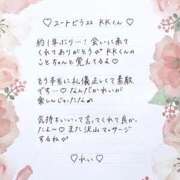 ♡ユートピラス KKくん♡
約1年ぶり…! 会いに来て
くれてありがとう♡ KKくんの
ことちゃんと覚えてるよ♡
もう本当に礼儀正しくて素敵
です…♡ なんだかんだが
楽しんじゃったなぁ
気持ちいいって言ってくれて良かっ
たよ〜♡ また沢山マッサージ
するねᰔ
♡れい♡